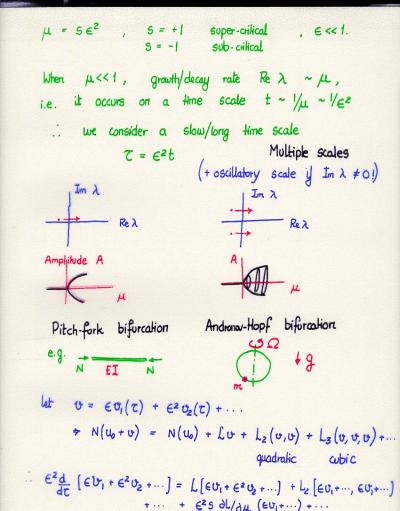 μ = s ε², s = +1 super-critical , ε << 1.
s = -1 sub-critical
When μ << 1, growth/decay rate Re λ ~ μ,
i.e. it occurs on a time scale t ~ 1/μ ~ 1/ε²
∴ we consider a slow/long time scale
τ = ε²t Multiple scales
(+ oscillatory scale if Im λ ≠ 0!)
Im λ
Re λ
Im λ
Re λ
Amplitude A
μ
A
μ
Pitch-fork bifurcation
Andronov-Hopf bifurcation
e.g.
N EI N
Ω
m
g
let v = εv₁(τ) + ε²v₂(τ) + ...
⇒ N(u₀ + v) = N(u₀) + Lv + L₂(v,v) + L₃(v,v,v) + ...
quadratic cubic
∴ ε² d/dτ [εv₁ + ε²v₂ + ...] = L[εv₁ + ε²v₂ + ...] + L₂[εv₁+..., εv₁+...]
+ ... + ε²s ∂L/∂μ (εv₁+...) + ...